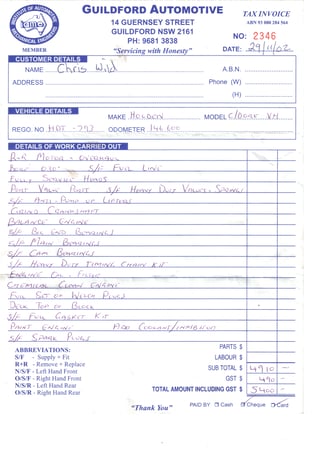 INSTITUTE OF AUTOMOTIVE MECHANICAL ENGINEERS
MEMBER
GUILDFORD AUTOMOTIVE
14 GUERNSEY STREET
GUILDFORD NSW 2161
PH: 9681 3838
"Servicing with Honesty"
TAX INVOICE
NO: 2346
DATE: 29/11/02
CUSTOMER DETAILS
NAME Chris Wild
A.B.N.
ADDRESS
Phone (W)
(H)
VEHICLE DETAILS
MAKE HOLDEN MODEL
REGO. NO ODOMETER
DETAILS OF WORK CARRIED OUT
R+R MOTOR - OVERHAUL
S/F FUEL LINE
FULLY SERVICE HEADS
S/F HEAVY DUTY VALVE SPRINGS
S/F ANTI-PUMP UP LIFTERS
GRIND CRANKSHAFT
BALANCE ENGINE
S/F BIG END BEARINGS
S/F MAIN BEARINGS
S/F CAM BEARINGS
S/F HEAVY DUTY TIMING CHAIN KIT
ENGINE OIL - FILTER
CHEMICAL CLEAN ENGINE
FULL SET OF WELCH PLUGS
DECK TOP OF BLOCK
S/F FULL GASKET KIT
PAINT ENGINE ADD COOLANT/INHIBITOR
S/F SPARK PLUGS
ABBREVIATIONS:
S/F - Supply + Fit
R+R - Remove + Replace
N/S/F - Left Hand Front
O/S/F - Right Hand Front
N/S/R - Left Hand Rear
O/S/R - Right Hand Rear
PARTS $
LABOUR $
SUB TOTAL $ 4910 -
GST $ 490 -
TOTAL AMOUNT INCLUDING GST $ 5400 -
"Thank You"
PAID BY: Cash Cheque Card